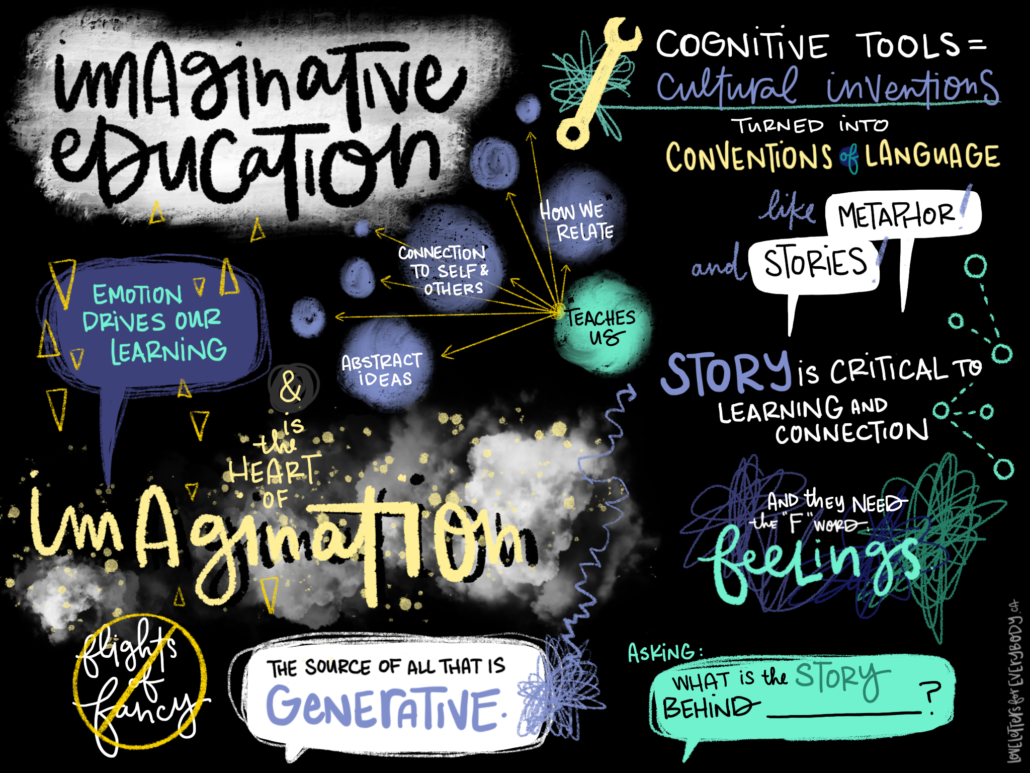 imAginative
eDUCATION
EMOTION
DRIVES OUR
LEARNING
&
is
the
HEART
OF
imAginATION
flights
of
fancy
THE SOURCE OF ALL THAT IS
GENERATIVE.
TEACHES
US
HOW WE
RELATE
CONNECTION
TO SELF &
OTHERS
ABSTRACT
iDEAS
COGNITIVE TOOLS =
Cultural inventions
TURNED INTO
CONVENTIONS of LANGUAGE
like METAPHOR!
and STORIES!
STORY is CRITICAL TO
LEARNING AND
CONNECTION
AND they NEED
the "F" WORD.
feeLings
ASKING:
WHAT is the STORY
BEHIND ____________ ?
LOVELETTERSforEVERYBODY.CA